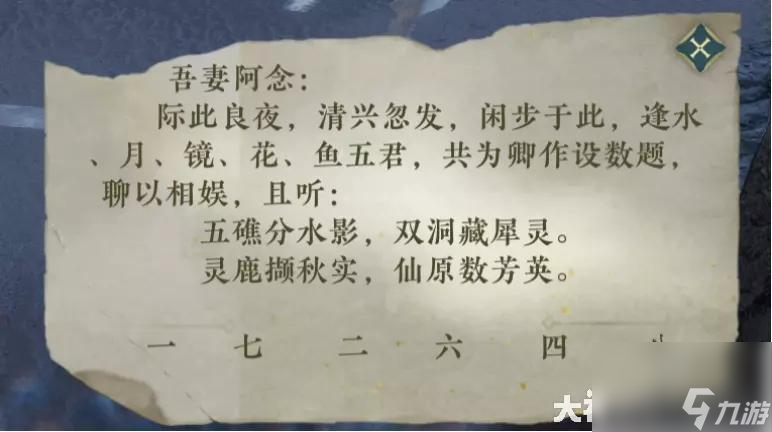 吾妻阿念：
际此良夜，清兴忽发，闲步于此，逢水
、月、镜、花、鱼五君，共为卿作设数题，
聊以相娱，且听：
五礁分水影，双洞藏犀灵。
灵鹿撷秋实，仙原数芳英。
一 七 二 六 四
大
九游